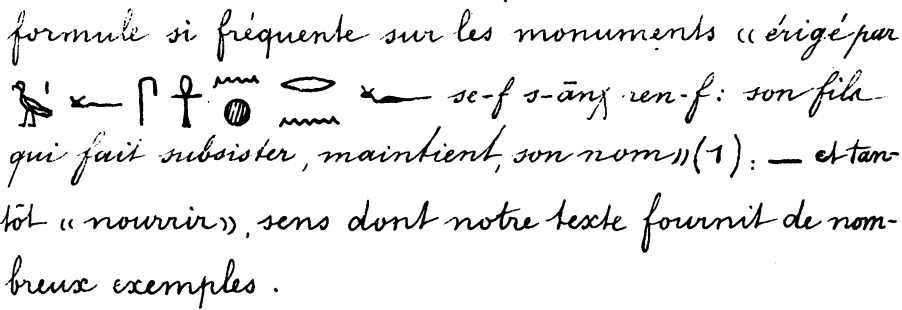 formule si fréquente sur les monuments « érigé par
𓅭𓏤𓆑𓋴𓋹𓈖𓐍𓂋𓈖𓆑 se-f s-ānχ ren-f : son fils
qui fait subsister, maintient, son nom » (1) : — et tan-
tôt « nourrir », sens dont notre texte fournit de nom-
breux exemples .